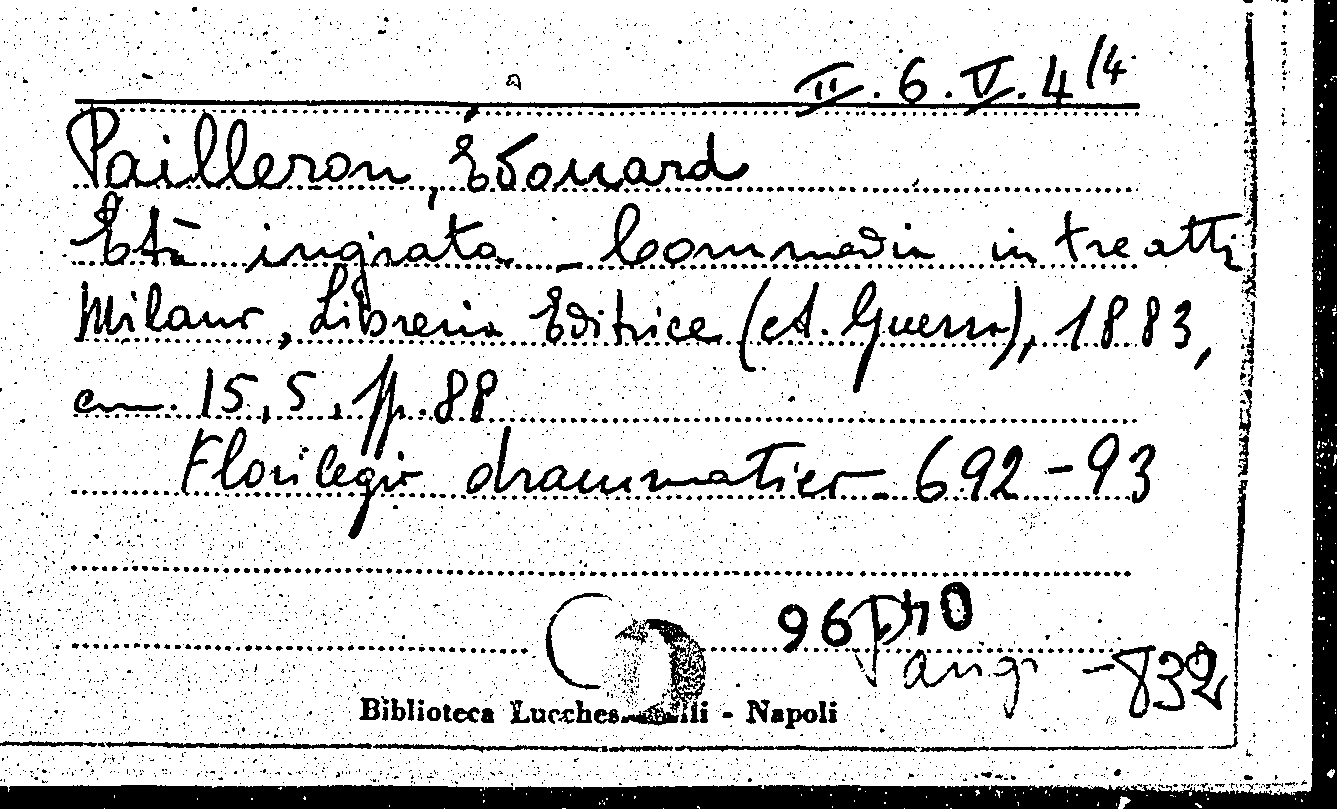 II.6.V.4/4
Pailleron, Édouard
Età ingrata - Commedia in tre atti
Milano, Libreria Editrice (A. Guerra), 1883,
cm. 15,5, pp. 88
Florilegio drammatico - 692-93
Biblioteca Lucchesi Palli - Napoli